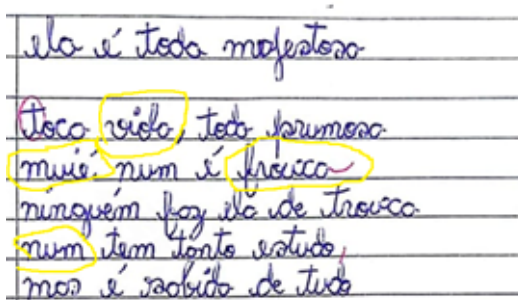 ela é toda majestosa
toca viola, toda prumosa
muié num é frôuxa
ninguém faz ela de trouxa
num tem tanto estudo,
mas é sabida de tudo